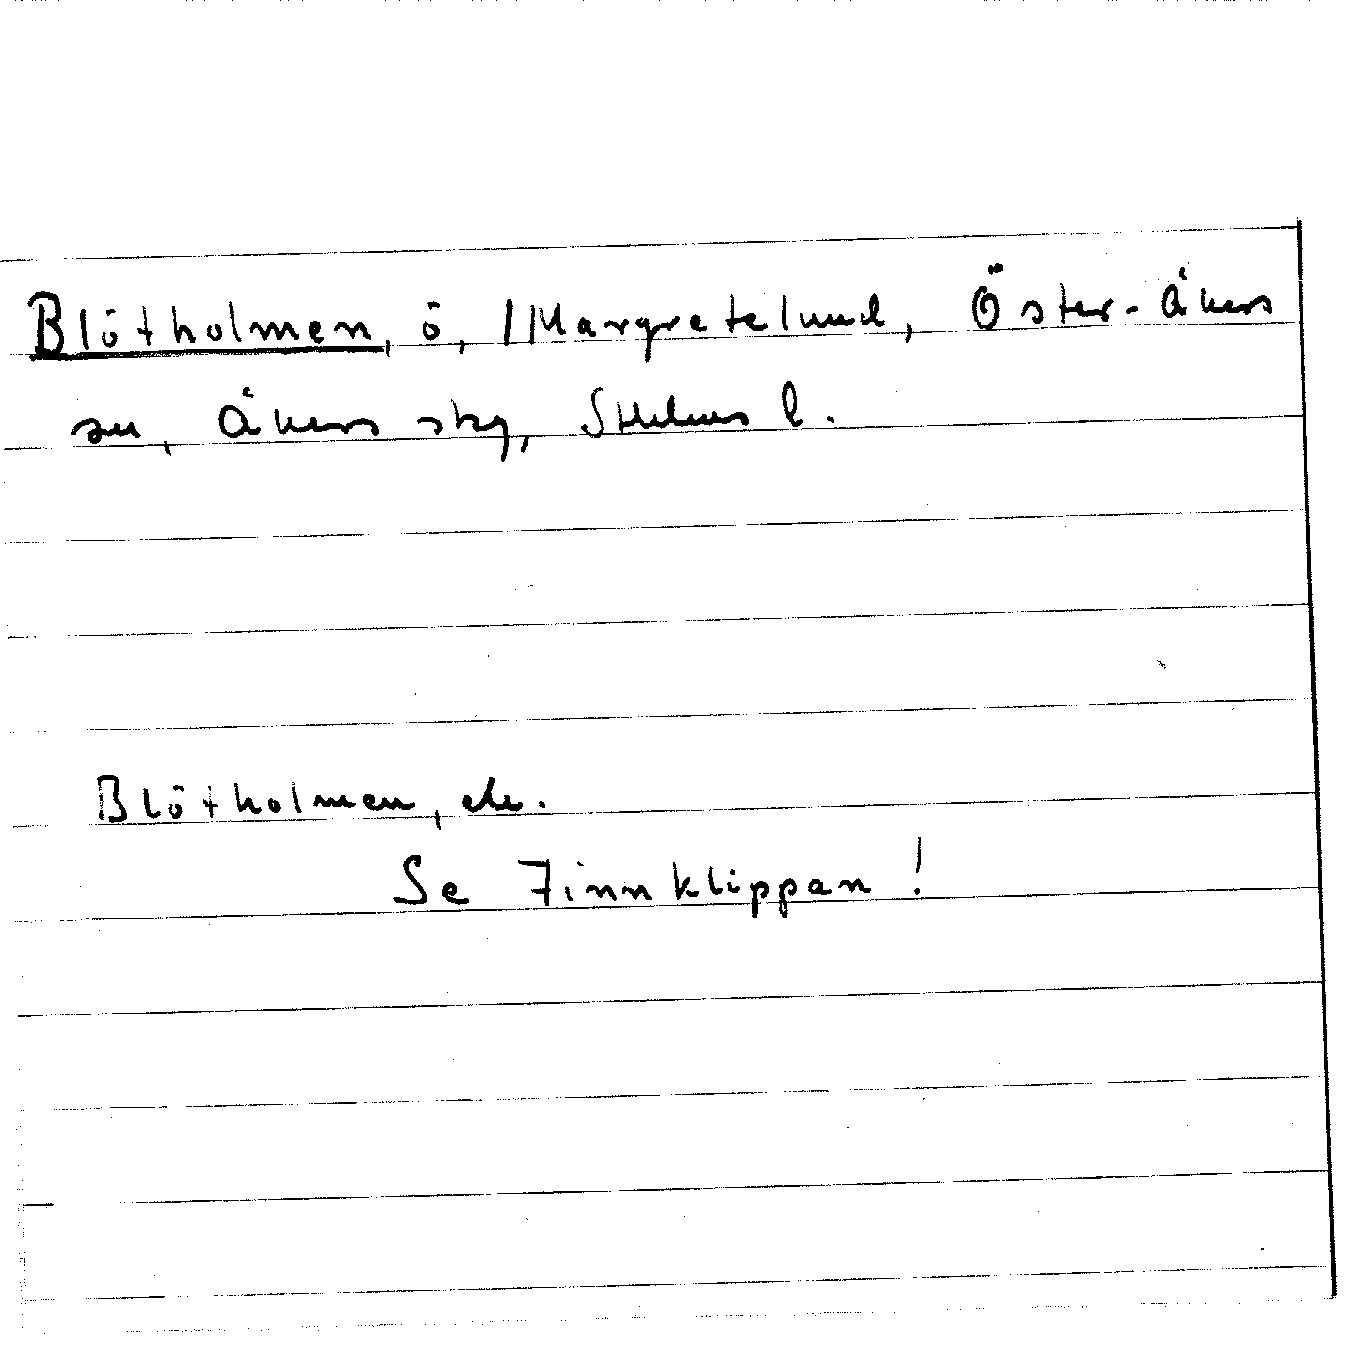 Blötholmen, ö, /Margretelund, Öster-Åkers
sn, Åkers skg, Sthlms l.
Blötholmen, etc.
Se Finnklippan!